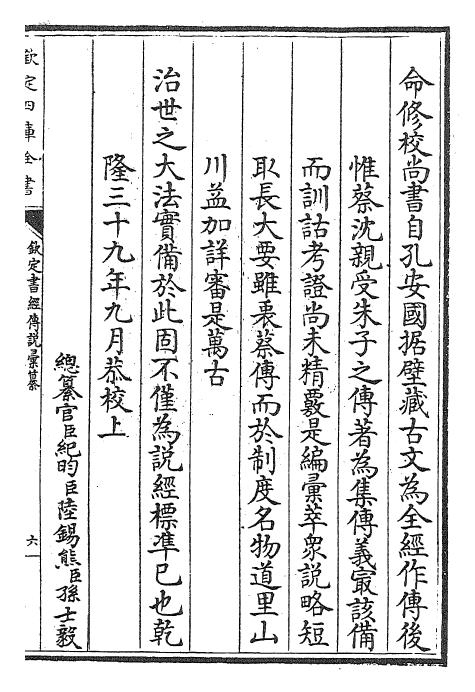 命修校尚書自孔安國据壁藏古文為全經作傳後
惟蔡沈親受朱子之傳著為集傳義㝡該備
而訓詁考證尚未精覈是編彙萃衆說略短
取長大要雖衷蔡傳而於制度名物道里山
川益加詳審是萬古
治世之大法實備於此固不僅為說經標準已也乾
隆三十九年九月恭校上
總纂官臣紀昀臣陸錫熊臣孫士毅
欽定四庫全書
欽定書經傳說彙纂
六